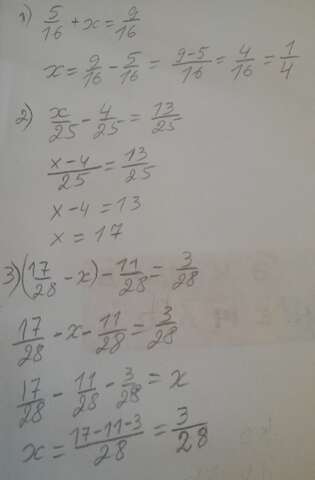 1) 5/16 + x = 9/16
x = 9/16 - 5/16 = 9-5/16 = 4/16 = 1/4
2) x/25 - 4/25 = 13/25
x-4/25 = 13/25
x-4 = 13
x = 17
3) (17/28 - x) - 11/28 = 3/28
17/28 - x - 11/28 = 3/28
17/28 - 11/28 - 3/28 = x
x = 17-11-3/28 = 3/28